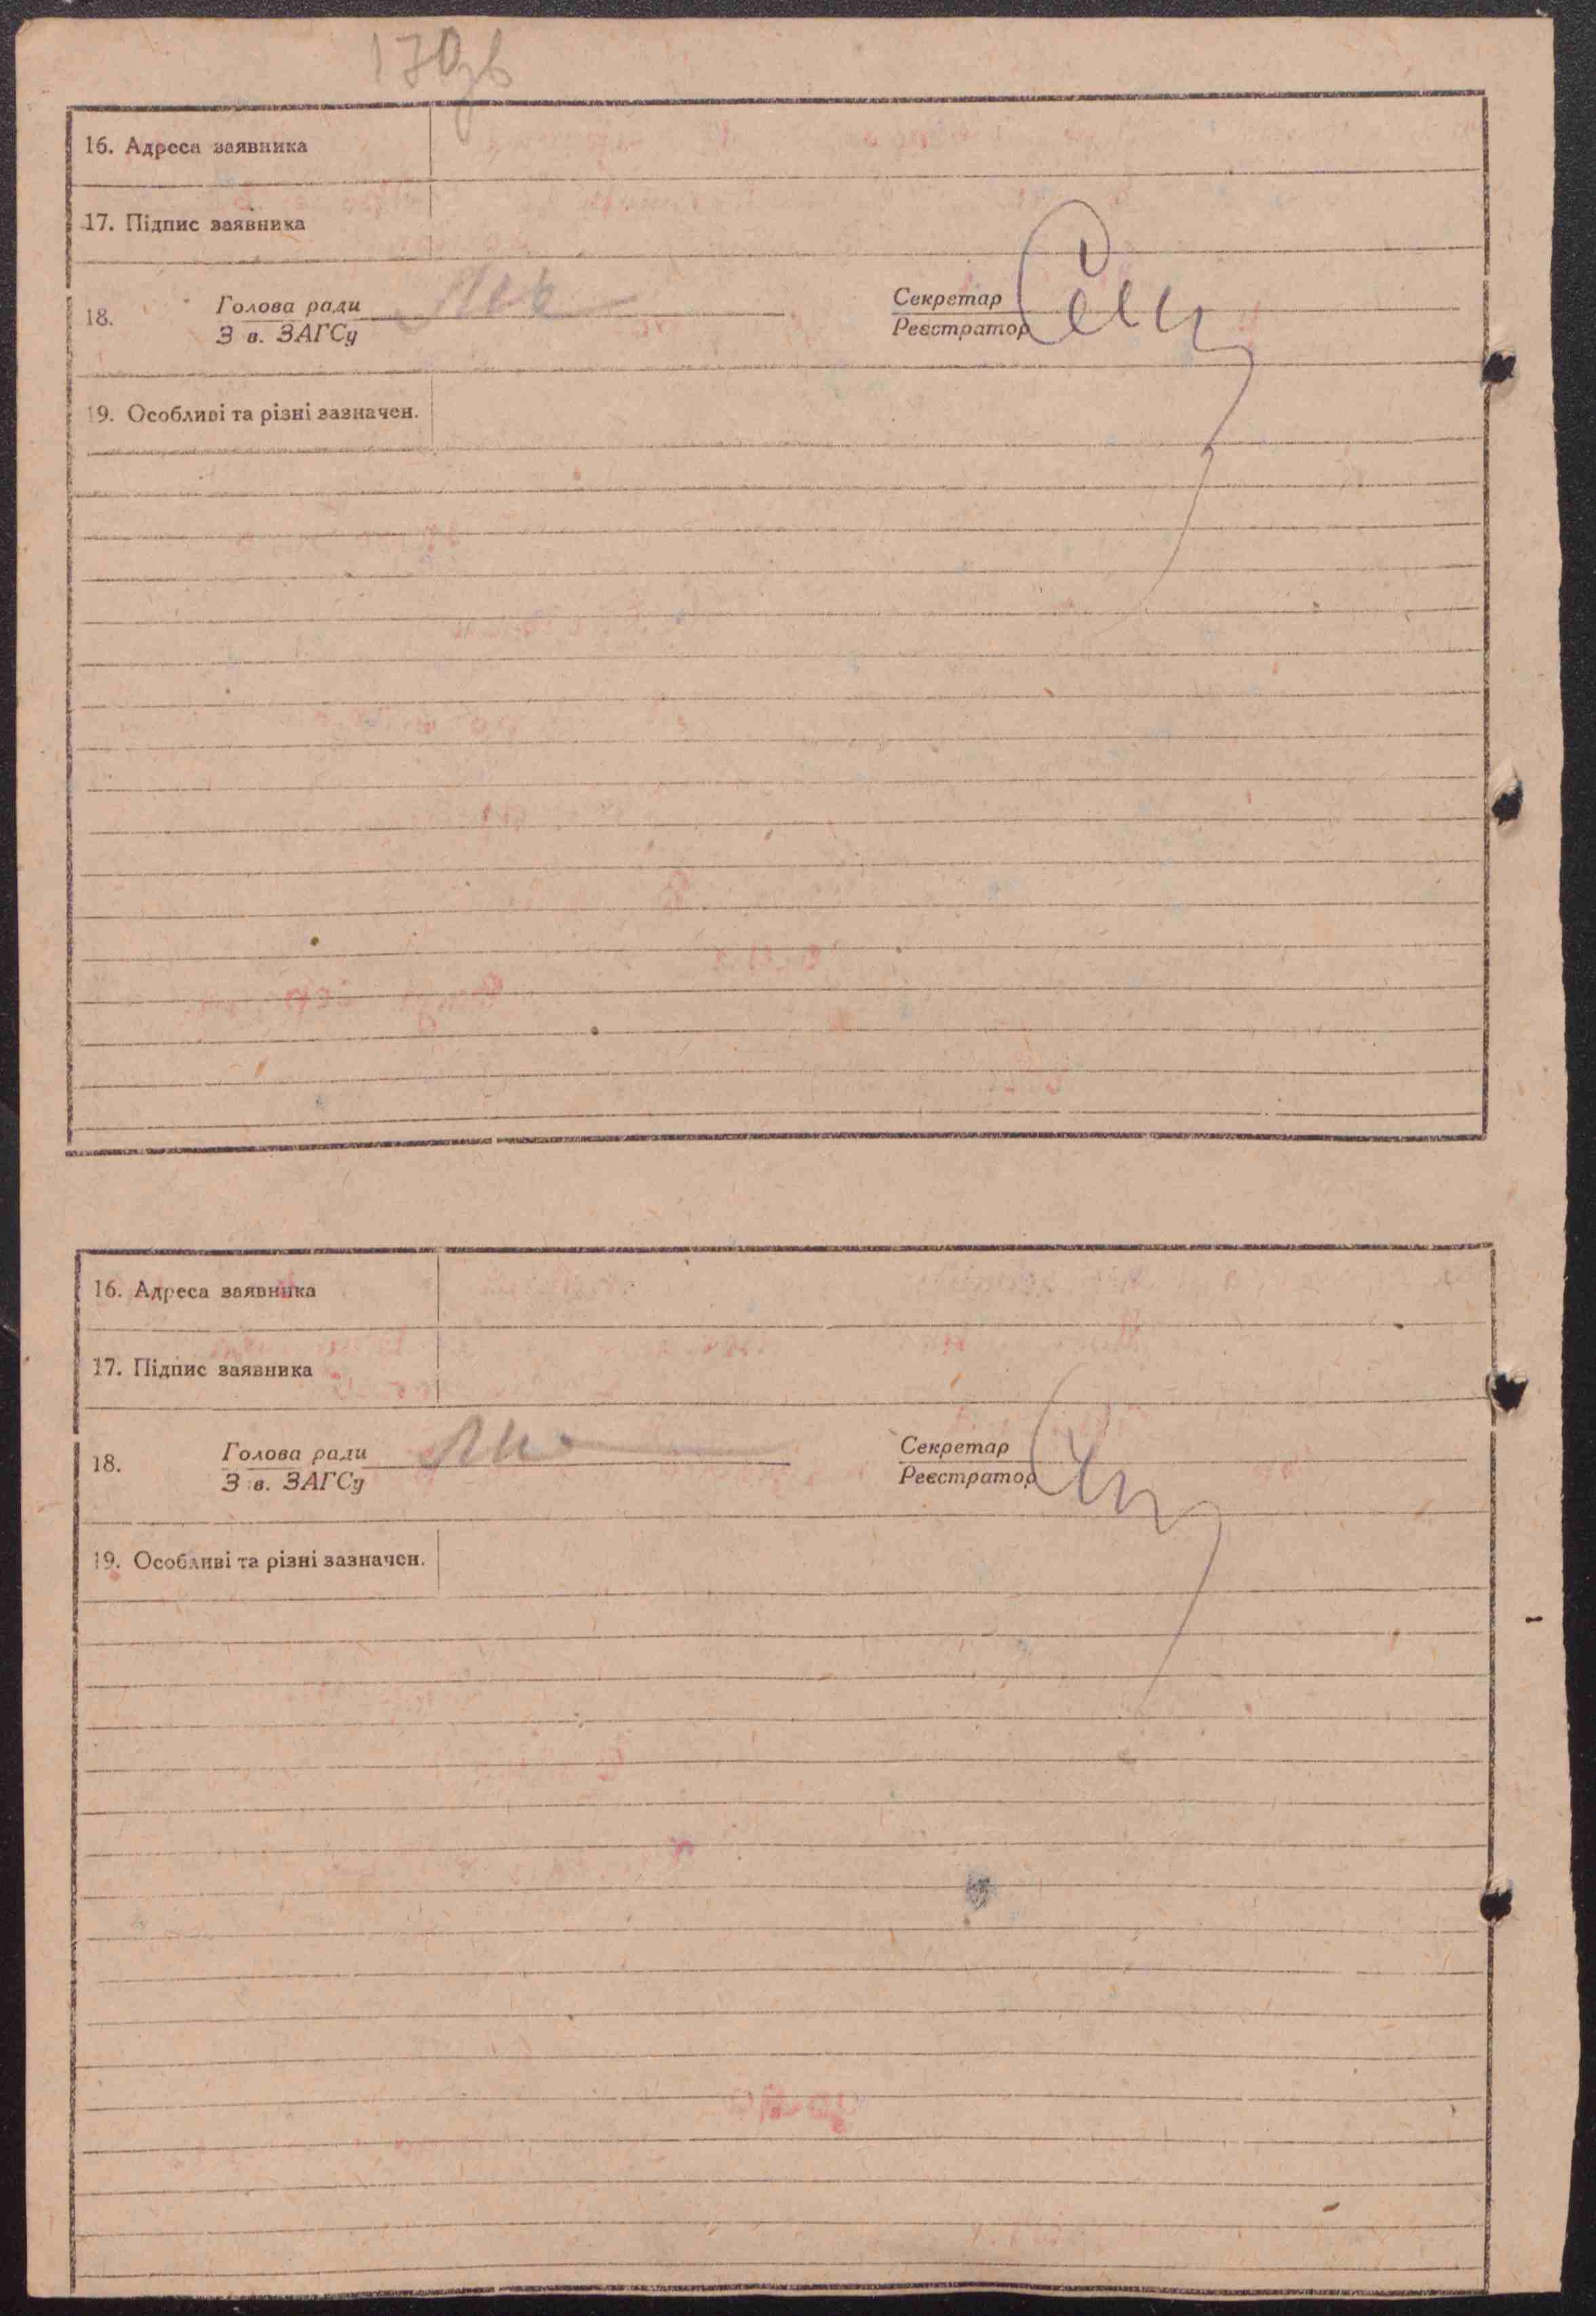 170зв
16. Адреса заявника
17. Підпис заявника
18. Голова ради Секретар
З в. ЗАГСу Реєстратор
19. Особливі та різні зазначен.
16. Адреса заявника
17. Підпис заявника
18. Голова ради Секретар
З в. ЗАГСу Реєстратор
19. Особливі та різні зазначен.